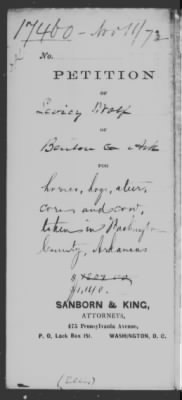 17460 - Nov 11/73
No.
PETITION
OF
Levicy Wolf
OF
Benton Co Ark
FOR
horses, hogs, steer,
corn and cow,
taken in Washington
County, Arkansas
$1,140.
SANBORN & KING,
ATTORNEYS,
475 Pennsylvania Avenue,
P. O. Lock Box 151. WASHINGTON, D. C.